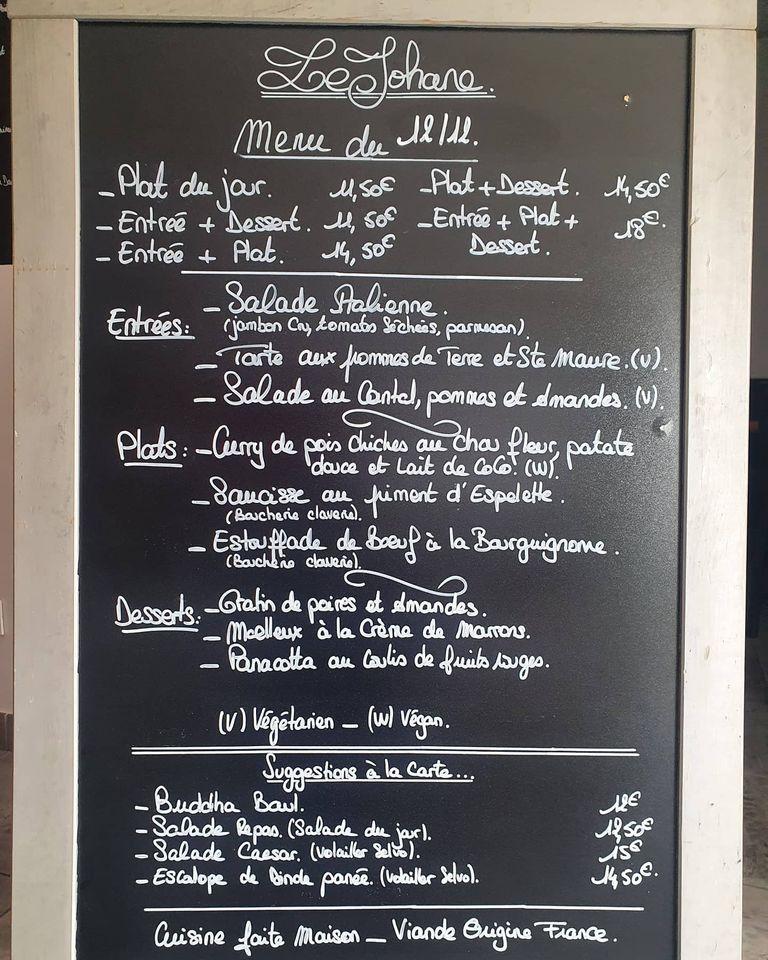 Le Johane.
Menu du 12/12.
- Plat du jour. 11,50€
- Entrée + Dessert. 11,50€
- Entrée + Plat. 14,50€
- Plat + Dessert. 14,50€
- Entrée + Plat + Dessert. 18€.
Entrées: - Salade Italienne.
(jambon Cru, tomates Séchées, parmesan).
- Tarte aux pommes de Terre et Ste Maure. (V).
- Salade au Cantal, pommes et Amandes. (V).
Plats: - Curry de pois chiches au chou fleur, patate
douce et Lait de CoCo. (W).
- Saucisse au piment d'Espelette.
(Boucherie claverie).
- Estouffade de Boeuf à la Bourguignonne.
(Boucherie claverie).
Desserts: - Gratin de poires et Amandes.
- Moelleux à la Crème de Marrons.
- Panacotta au Coulis de fruits rouges.
(V) Végétarien - (W) Végan.
Suggestions à la Carte...
- Buddha Bowl. 12€
- Salade Repas. (Salade du jour). 12,50€
- Salade Caesar. (Volailler Selvo). 15€
- Escalope de Dinde panée. (Volailler Selvo). 14,50€.
Cuisine faite Maison - Viande Origine France.